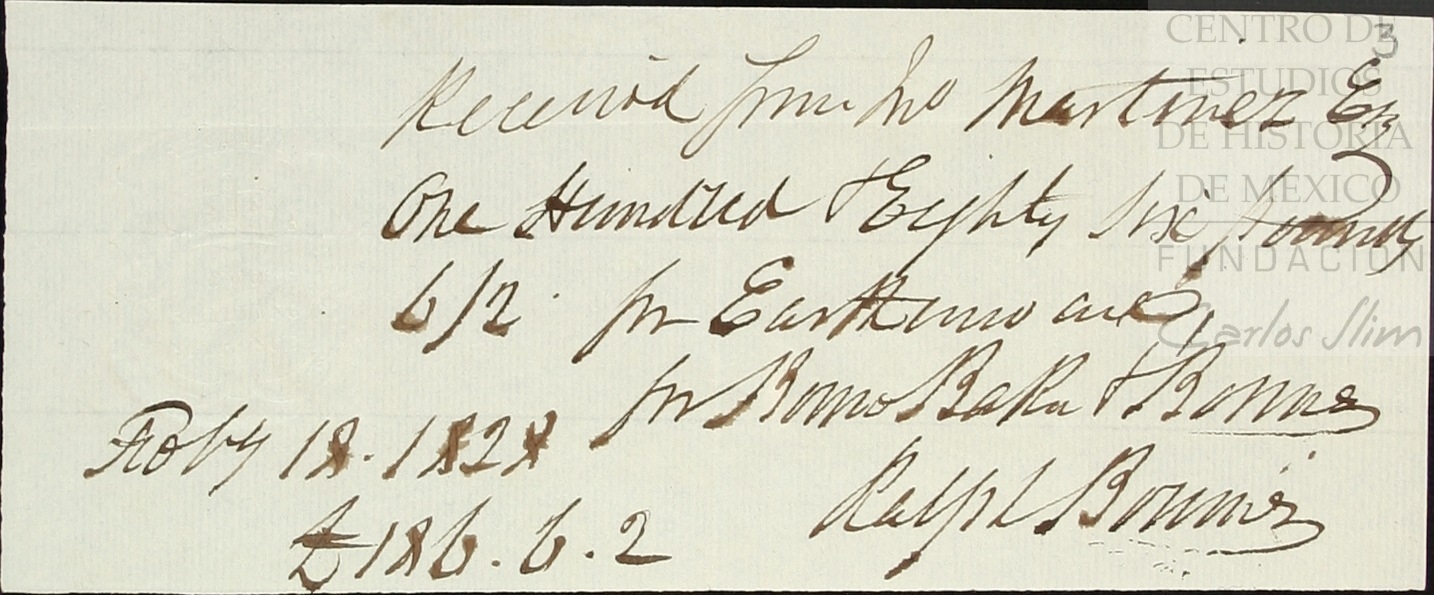 3
CENTRO DE
ESTUDIOS
DE HISTORIA
DE MÉXICO
FUNDACIÓN
Carlos Slim
Received from Jno Martinez Esq
One Hundred & Eighty Six pounds
6/2 for Earthenware,
for Bourne Baker & Bourne
Feby 18. 1828
Ralph Bourne
£186.6.2